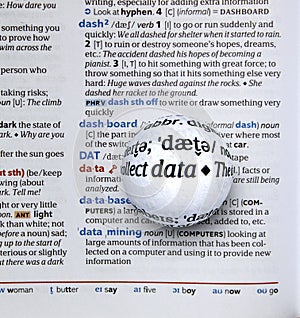 e: How dare you
something you
to prove how
swim across the
person who
risks
oun [U]: The climb
dark the state of
k • Why are you
after the sun goes
ut sth) (be/keep
wing (about
ark. Tell me!
t or very little
ANT light
k than white; not
before a noun) sad;
g up to the start of
terious or slightly
at there was a dark
writing, especially for adding extra information
Look at hyphen. 4 [C] (informal) = DASHBOARD
dash² /dæʃ/ verb 1 [I] to go or run suddenly and
quickly: We all dashed for shelter when it started to rain.
2 [T] to ruin or destroy someone's hopes, dreams,
etc.: The accident dashed his hopes of becoming a
pianist. 3 [I, T] to hit something with great force; to
throw something so that it hits something else very
hard: Huge waves dashed against the rocks. • She
dashed her racket to the ground.
PHR V dash sth off to write or draw something very
quickly
dashboard
(informal dash) noun
[C] the part in
where most of
the car.
DAT /dæt
data
[pl.] facts or
information
are still being
analyzed.
database
[C] (COM-
PUTERS) a large
is stored in a
computer and can
, added to, etc.
data mining noun [U] (COMPUTERS) looking at
large amounts of information that has been col-
lected on a computer and using it to provide new
information
abbr. d
ˈdæt̬ə/ n
llect data • The
ˈdæt̬ə/
w woman t̬ butter eɪ say aɪ five ɔɪ boy aʊ now oʊ go